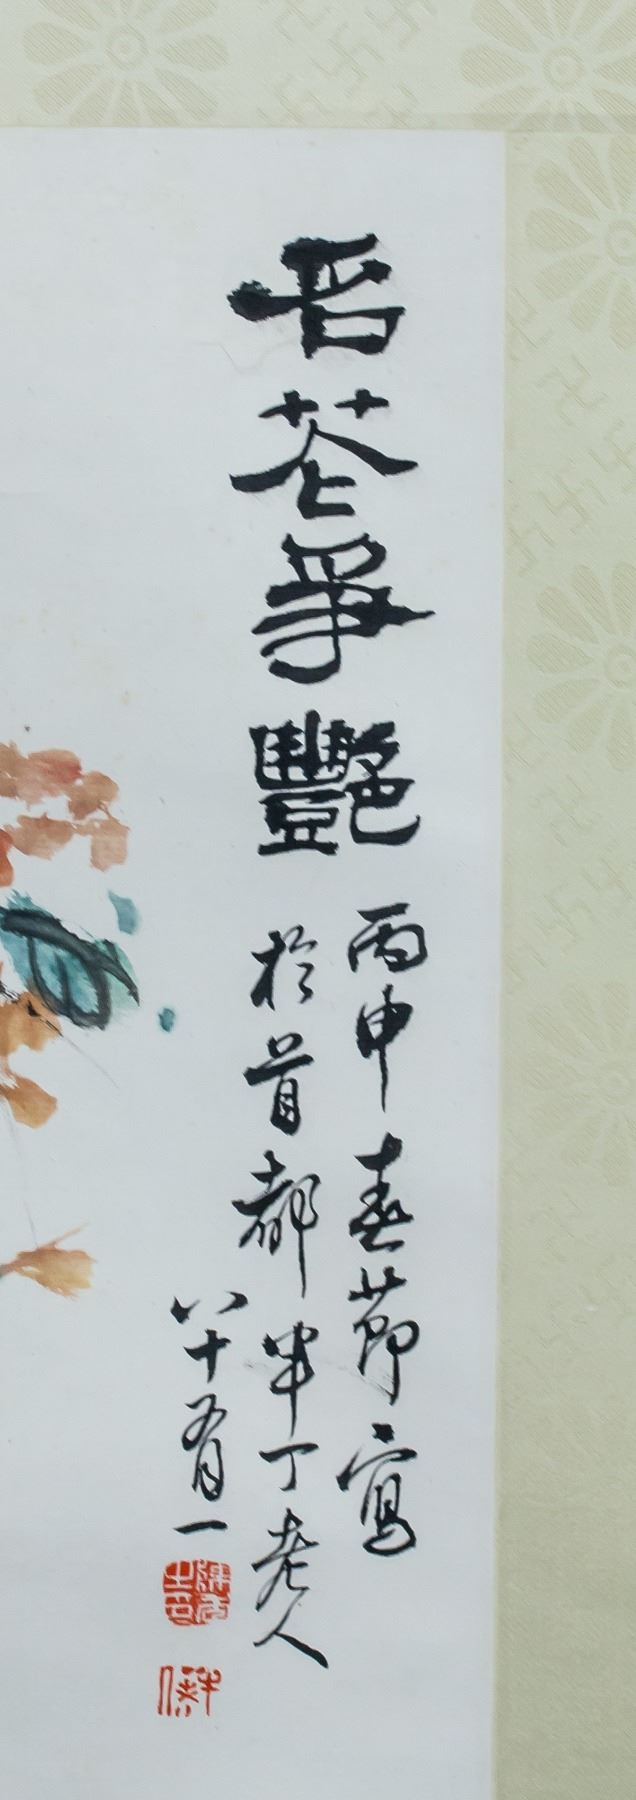 百花爭艷
丙申春節寫
於首都半丁老人
八十有一